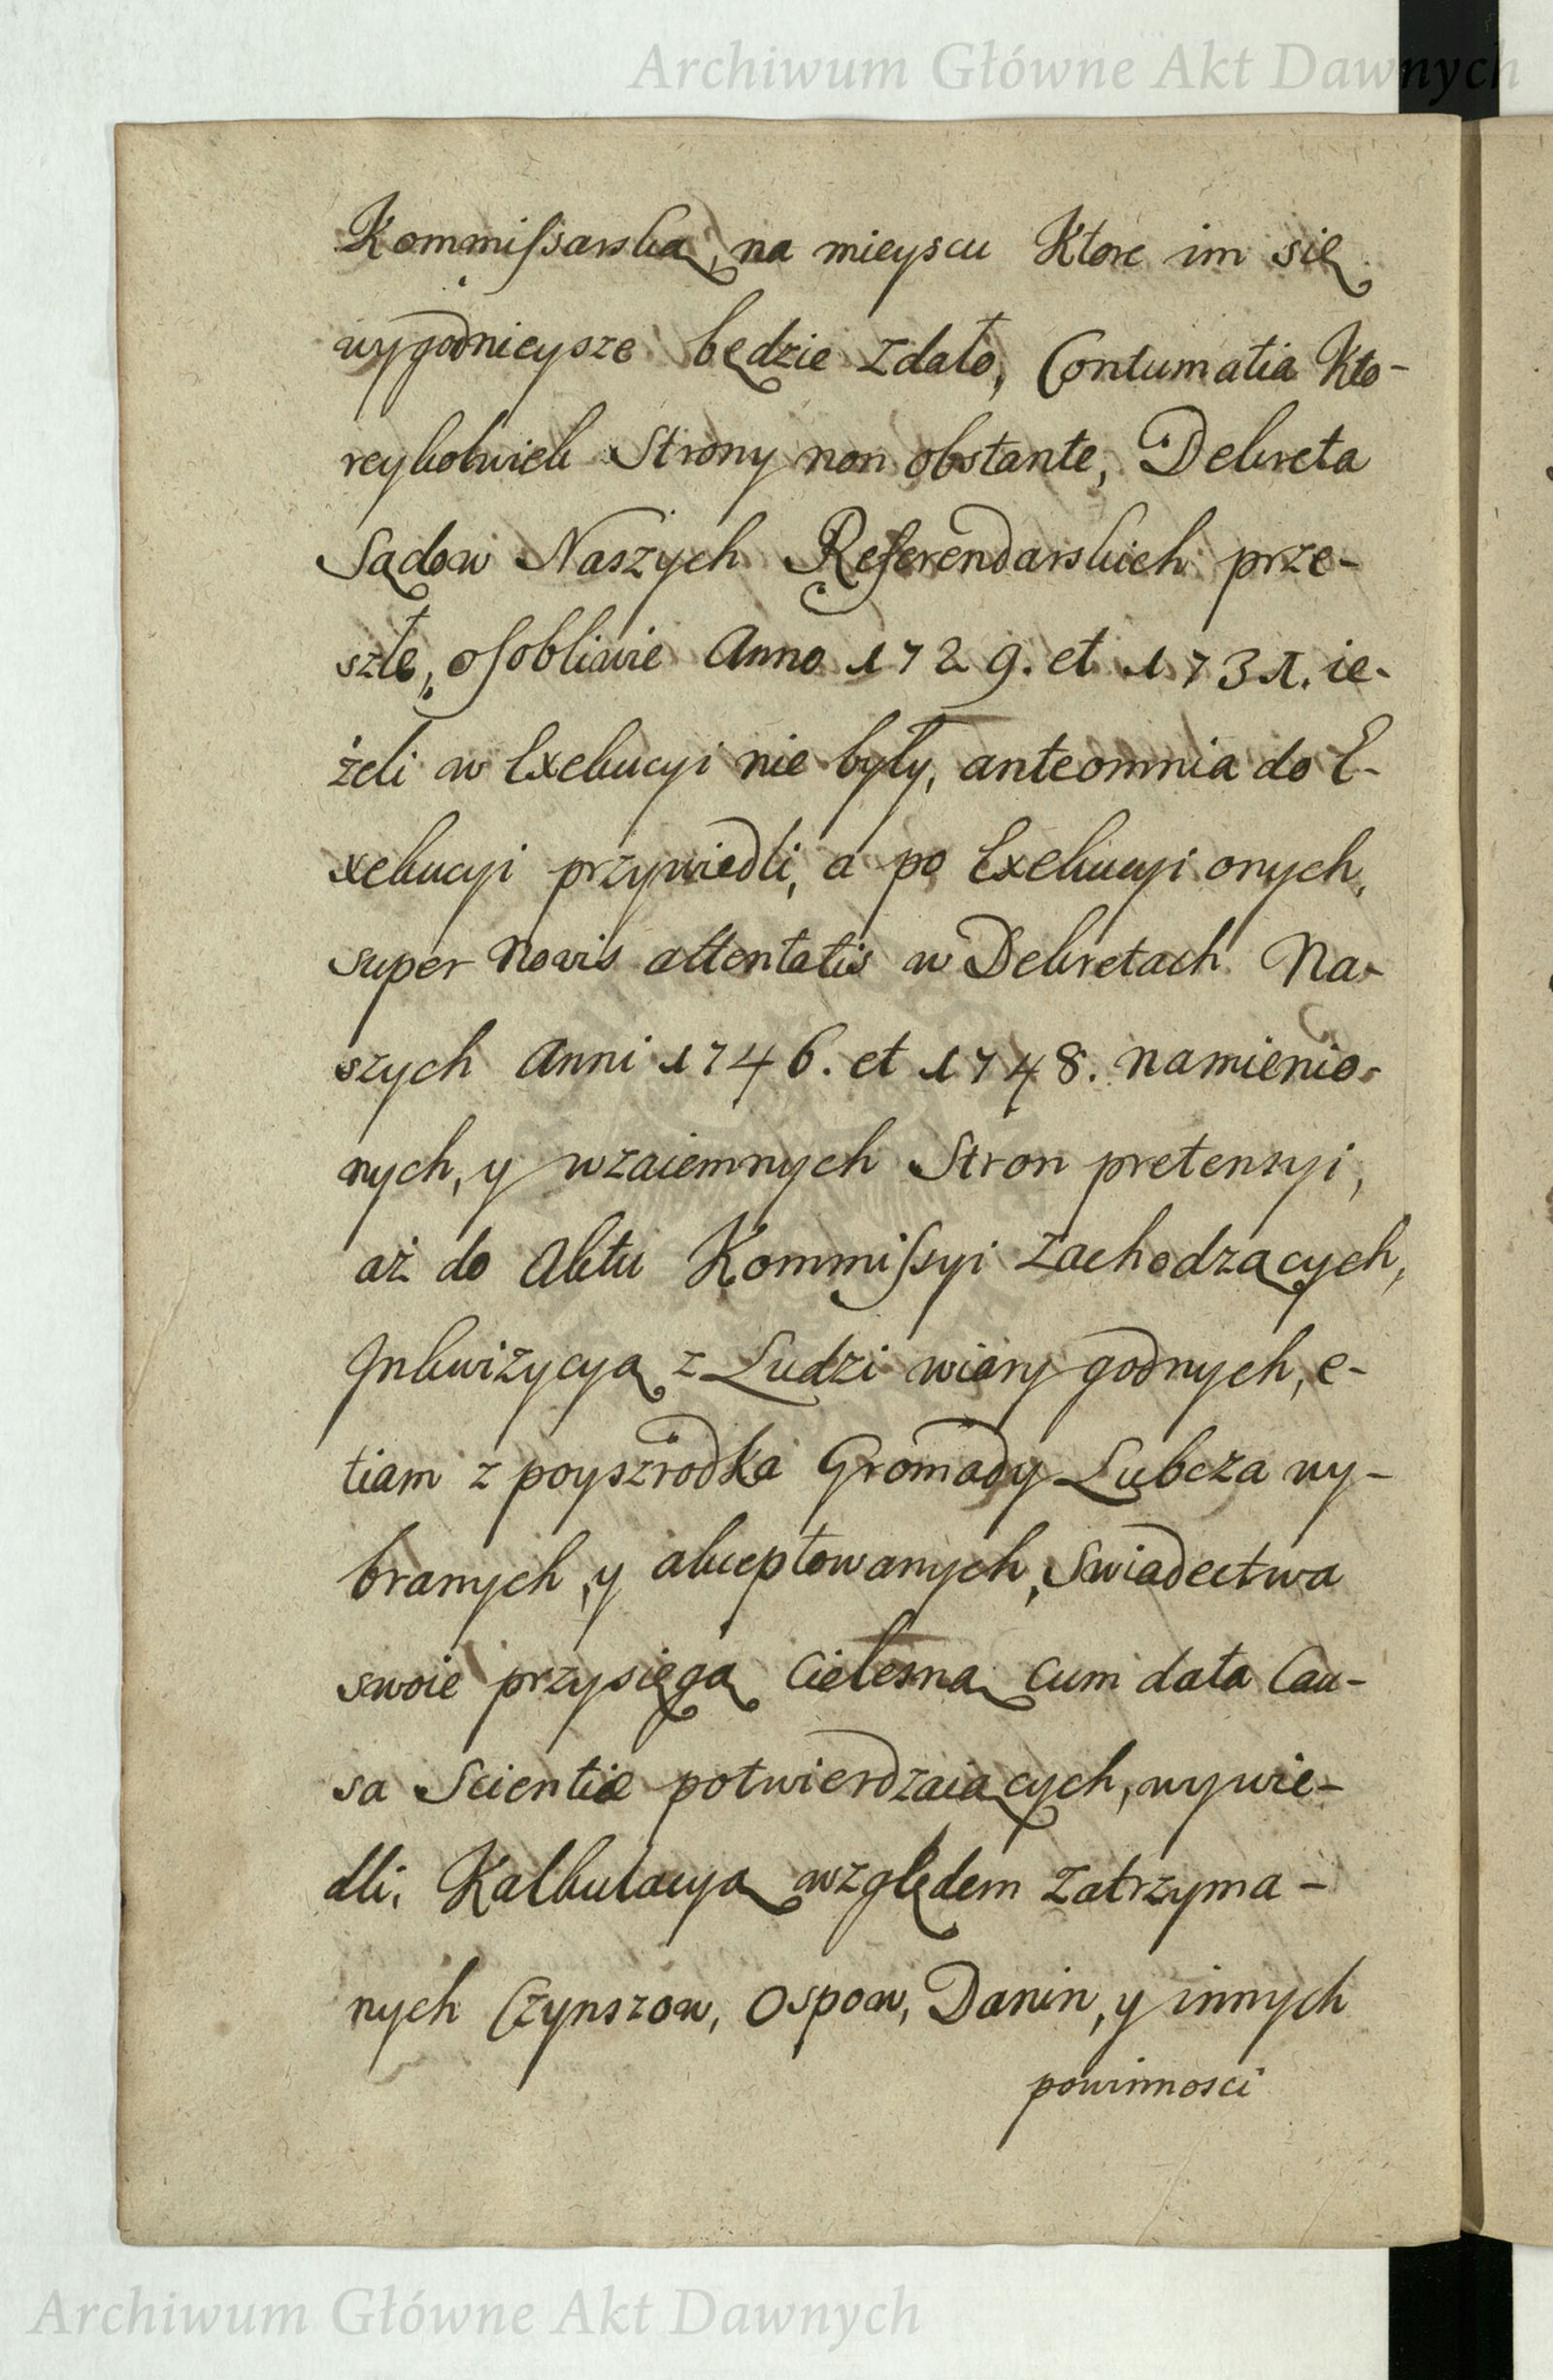 Archiwum Główne Akt Dawnych
Kommiſsarską, na mieyscu Ktore im się
wygodnieysze będzie zdało, Contumatia Kto-
reykolwiek Strony non obstante, Dekreta
Sądow Naszych Referendarskich prze-
szłe, oſobliwie Anno 1729. et 1731. ie-
żeli w Exekucyi nie były, anteomnia do E-
xekucyi przywiedli, a po Exekucyi onych,
super novis attentatis w Dekretach Na-
szych Anni 1746. et 1748. namienio-
nych, y wzaiemnych Stron pretensyi,
aż do Aktu Kommiſsyi zachodzących,
Inkwizycyą z Ludzi wiary godnych, e-
tiam z poyszrodka Gromady Lubcza wy-
branych, y akceptowanych, Swiadectwa
swoie przysięgą Cielesną cum data Cau-
sa Scientiæ potwierdzaiących, wywie-
dli, Kalkulacyą względem zatrzyma-
nych Czynszow, Ospow, Danin, y innych
powinnosci
Archiwum Główne Akt Dawnych